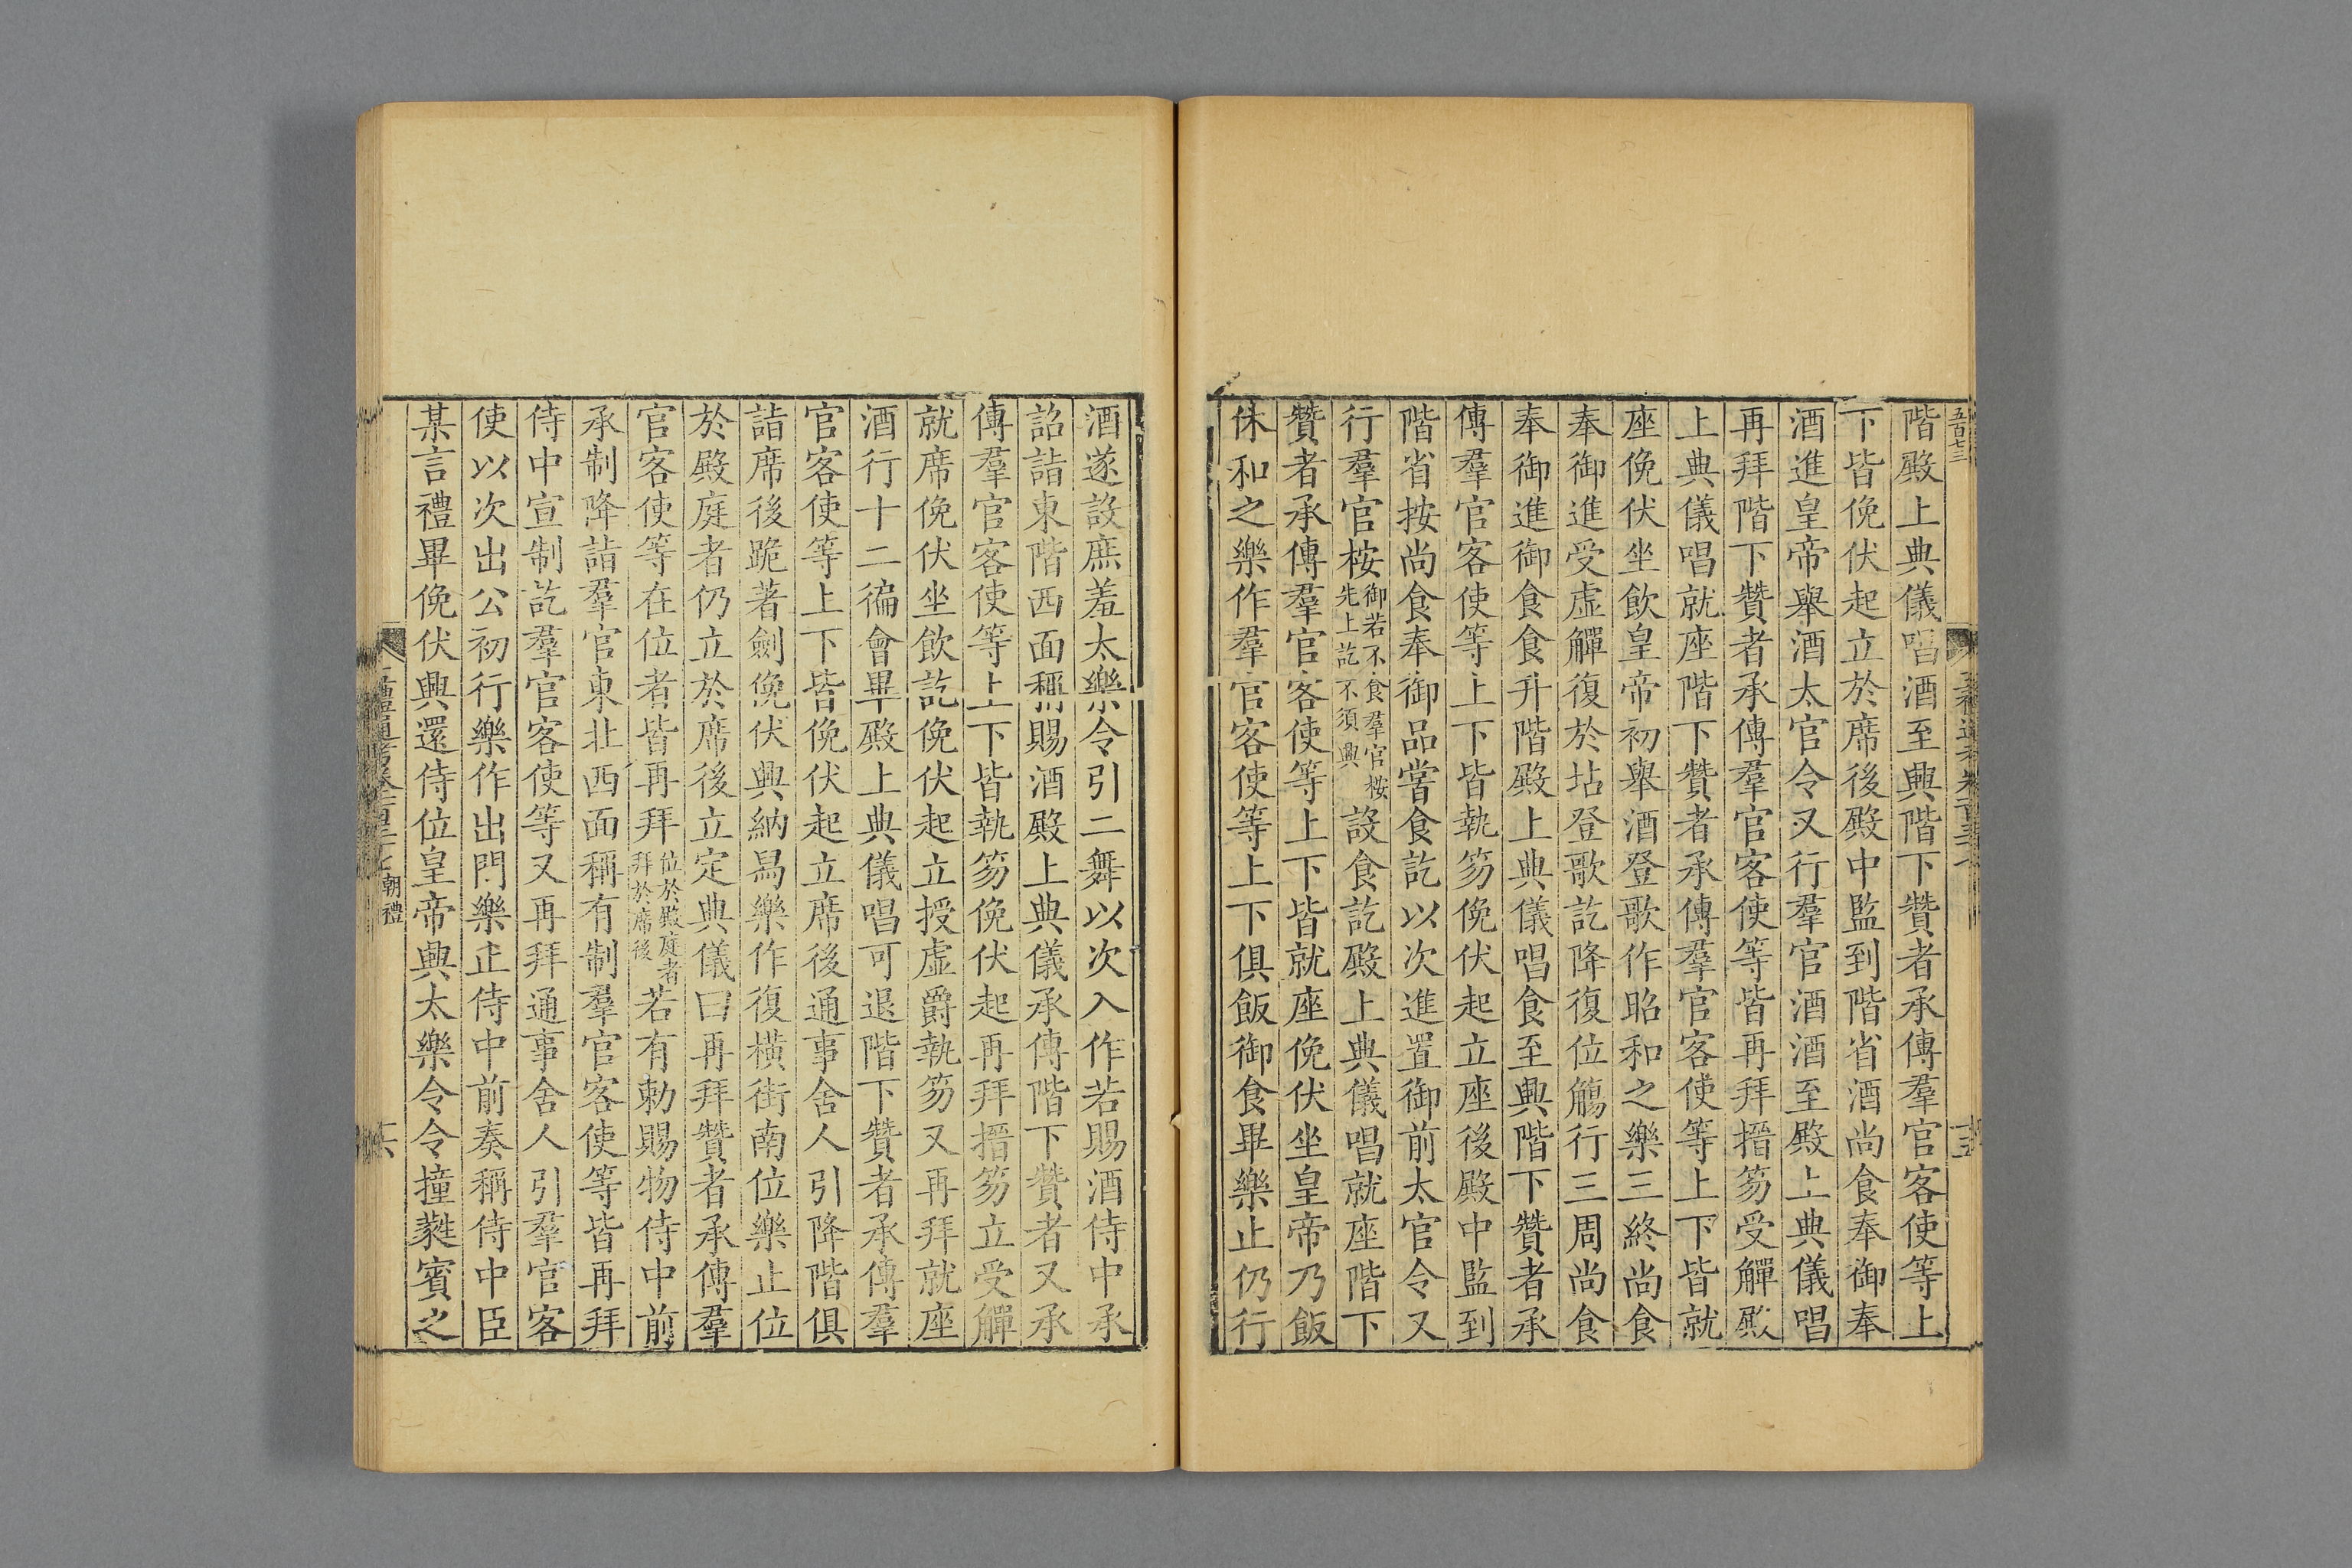 五百七三
階殿上典儀唱酒至興階下贊者承傳羣官客使等上
下皆俛伏起立於席後殿中監到階省酒尚食奉御奉
酒進皇帝舉酒太官令又行羣官酒酒至殿上典儀唱
再拜階下贊者承傳羣官客使等皆再拜搢笏受觶殿
上典儀唱就座階下贊者承傳羣官客使等上下皆就
座俛伏坐飲皇帝初舉酒登歌作昭和之樂三終尚食
奉御進受虛觶復於坫登歌訖降復位觴行三周尚食
奉御進御食食升階殿上典儀唱食至興階下贊者承
傳羣官客使等上下皆執笏俛伏起立座後殿中監到
階省按尚食奉御品嘗食訖以次進置御前太官令又
行羣官桉御若不食羣官桉先上訖不須興設食訖殿上典儀唱就座階下
贊者承傳羣官客使等上下皆就座俛伏坐皇帝乃飯
休和之樂作羣官客使等上下俱飯御食畢樂止仍行
酒遂設庶羞太樂令引二舞以次入作若賜酒侍中承
詔詣東階西面稱賜酒殿上典儀承傳階下贊者又承
傳羣官客使等上下皆執笏俛伏起再拜搢笏立受觶
就席俛伏坐飲訖俛伏起立授虛爵執笏又再拜就座
酒行十二徧會畢殿上典儀唱可退階下贊者承傳羣
官客使等上下皆俛伏起立席後通事舍人引降階俱
詣席後跪著劍俛伏興納舄樂作復橫街南位樂止位
於殿庭者仍立於席後立定典儀曰再拜贊者承傳羣
官客使等在位者皆再拜位於殿庭者拜於席後若有勅賜物侍中前
承制降詣羣官東北西面稱有制羣官客使等皆再拜
侍中宣制訖羣官客使等又再拜通事舍人引羣官客
使以次出公初行樂作出門樂止侍中前奏稱侍中臣
某言禮畢俛伏興還侍位皇帝興太樂令令撞蕤賓之
朝禮